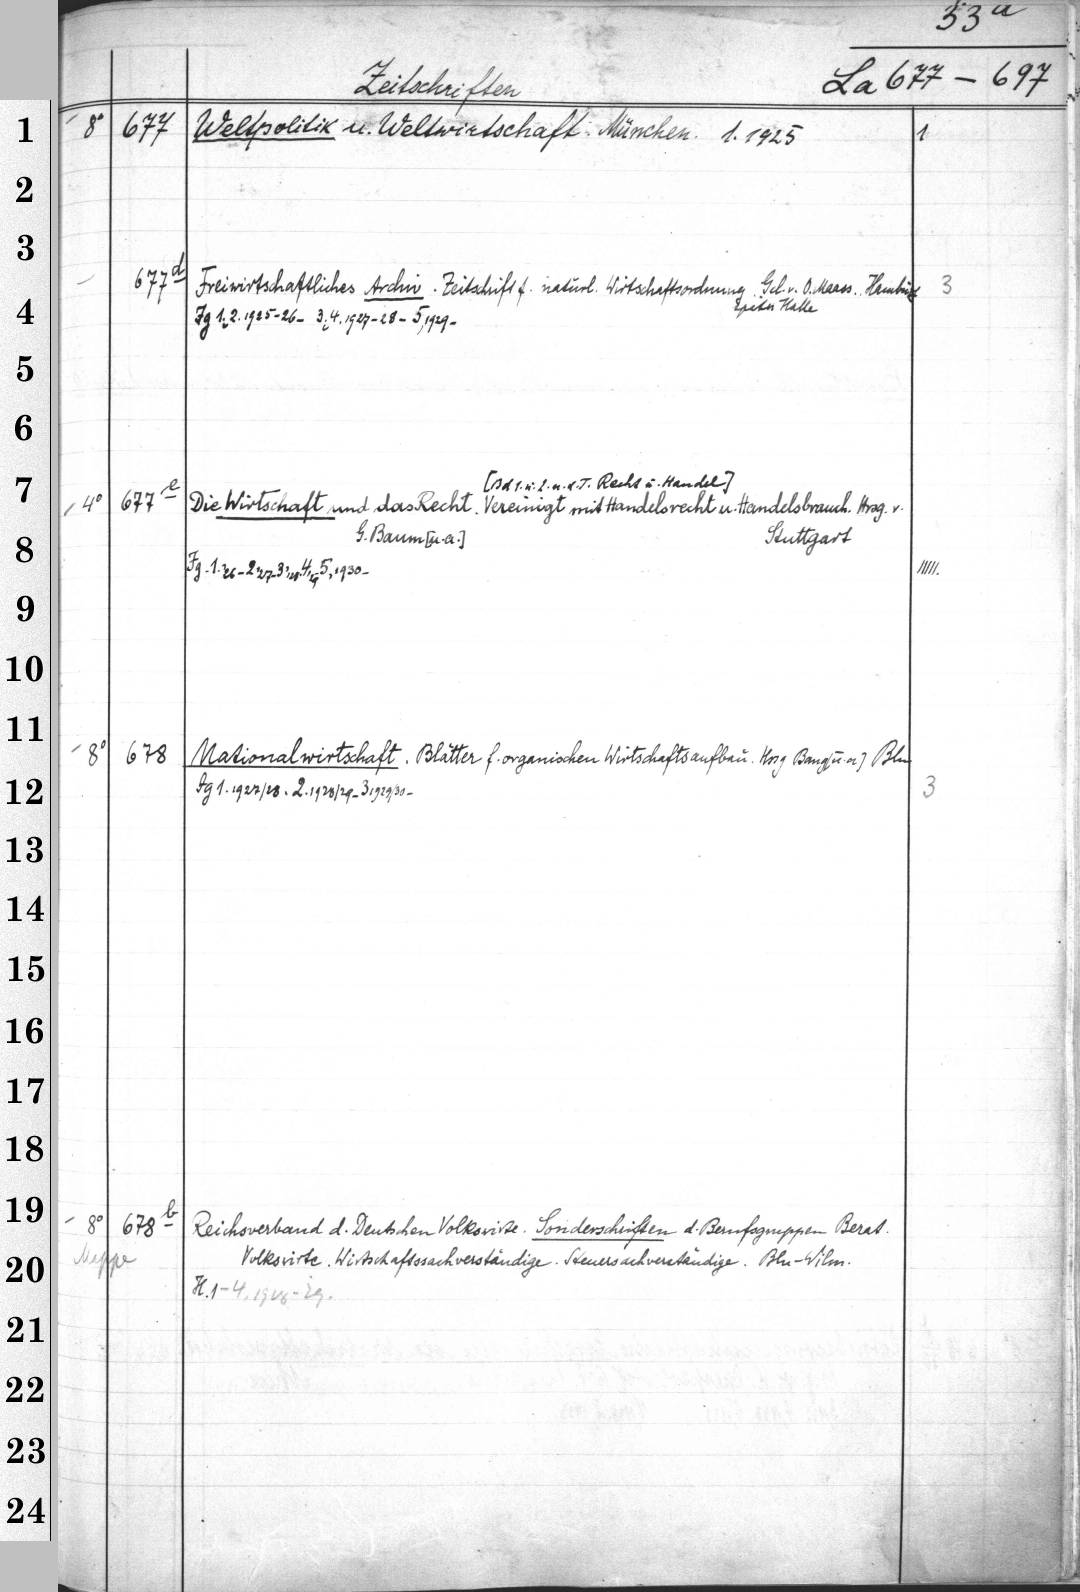 53a
Zeitschriften
La 677 – 697
1 8° 677 Weltpolitik u. Weltwirtschaft. München. 1. 1925 1
2
3
677d Freiwirtschaftliches Archiv. Zeitschrift f. natürl. Wirtschaftsordnung. Gel. v. O. Maass. Hamburg 3
später Halle
4 Jg 1. 2. 1925-26 – 3. 4. 1927-28 – 5, 1929 –
5
6
[Bd 1. u. 2. u. d. T. Recht u. Handel]
7 4° 677e Die Wirtschaft und das Recht. Vereinigt mit Handelsrecht u. Handelsbrauch. Hrsg. v.
8 G. Baum [u.a.] Stuttgart
Jg. 1. 26 – 2 27 – 3, 28. 4, 29 5, 1930 – /////.
9
10
11 8° 678 Nationalwirtschaft. Blätter f. organischen Wirtschaftsaufbau. Hrsg Bang [u. a] Bln
12 Jg 1. 1927/28. 2. 1928/29 – 3 1929/30 – 3
13
14
15
16
17
18
19 8° 678b Reichsverband d. Deutschen Volkswirte. Sonderschriften d. Berufsgruppen Berat.
20 Mappe Volkswirte. Wirtschaftssachverständige. Steuersachverständige. Bln-Wilm.
H. 1 – 4. 1928 – 29.
21
22
23
24